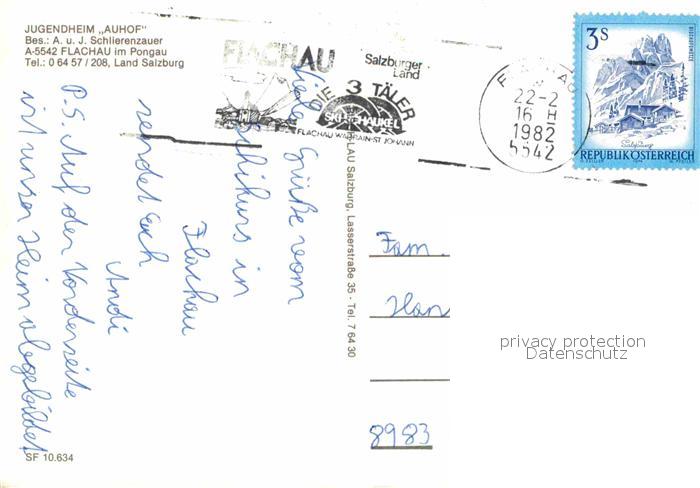 JUGENDHEIM „AUHOF"
Bes.: A. u. J. Schlierenzauer
A-5542 FLACHAU im Pongau
Tel.: 0 64 57 / 208, Land Salzburg
FLACHAU
Salzburger
Land
DIE 3 TÄLER
SKISCHAUKEL
FLACHAU WAGRAIN-ST JOHANN
22-2
16 H
1982
5542
3S
REPUBLIK ÖSTERREICH
Viele Grüße vom
Schikurs in
Flachau
sendet Euch
Andi
P.S. Auf der Vorderseite
ist unser Heim abgebildet
LAU Salzburg, Lasserstraße 35 - Tel. 7 64 30
Fam.
Han
8983
privacy protection
Datenschutz
SF 10.634